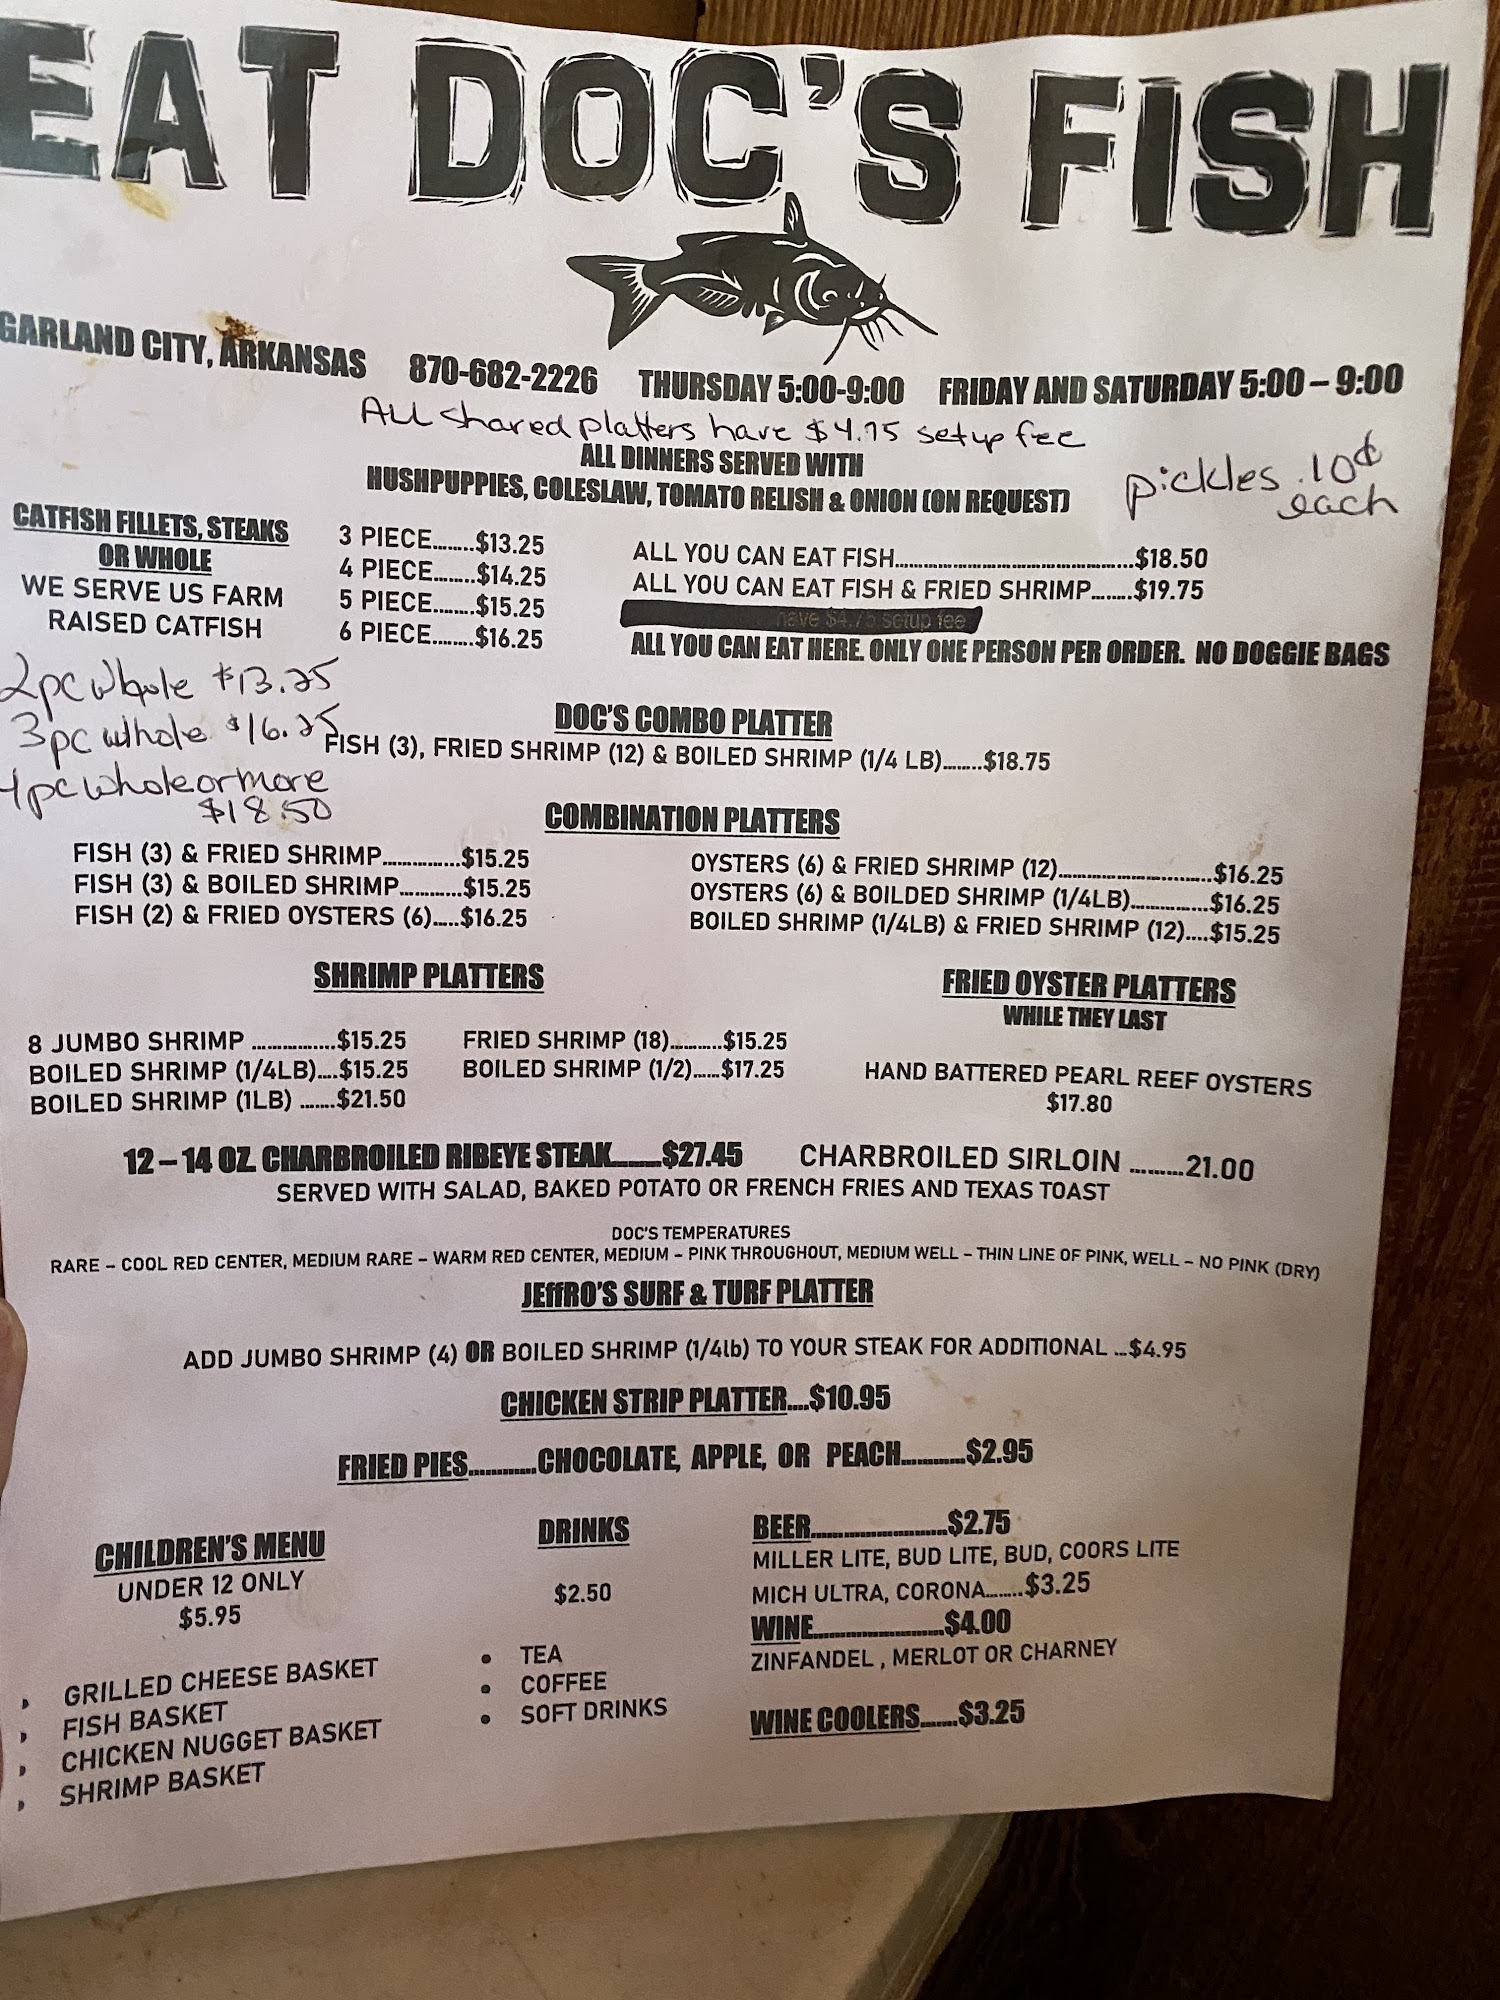 EAT DOC'S FISH
GARLAND CITY, ARKANSAS 870-682-2226 THURSDAY 5:00-9:00 FRIDAY AND SATURDAY 5:00 – 9:00
ALL shared platters have $4.75 setup fee
ALL DINNERS SERVED WITH
HUSHPUPPIES, COLESLAW, TOMATO RELISH & ONION (ON REQUEST)
pickles .10¢
each
CATFISH FILLETS, STEAKS
OR WHOLE
WE SERVE US FARM
RAISED CATFISH
3 PIECE........$13.25
4 PIECE........$14.25
5 PIECE........$15.25
6 PIECE........$16.25
ALL YOU CAN EAT FISH................................................$18.50
ALL YOU CAN EAT FISH & FRIED SHRIMP........$19.75
have $4.75 setup fee
ALL YOU CAN EAT HERE. ONLY ONE PERSON PER ORDER. NO DOGGIE BAGS
2pc whole $13.25
3pc whole $16.25
4pc whole or more
$18.50
DOC'S COMBO PLATTER
FISH (3), FRIED SHRIMP (12) & BOILED SHRIMP (1/4 LB)........$18.75
COMBINATION PLATTERS
FISH (3) & FRIED SHRIMP...............$15.25
FISH (3) & BOILED SHRIMP............$15.25
FISH (2) & FRIED OYSTERS (6).....$16.25
OYSTERS (6) & FRIED SHRIMP (12)...............................$16.25
OYSTERS (6) & BOILDED SHRIMP (1/4LB)................$16.25
BOILED SHRIMP (1/4LB) & FRIED SHRIMP (12)....$15.25
SHRIMP PLATTERS
8 JUMBO SHRIMP ................$15.25
BOILED SHRIMP (1/4LB)....$15.25
BOILED SHRIMP (1LB) .......$21.50
FRIED SHRIMP (18)..........$15.25
BOILED SHRIMP (1/2)......$17.25
FRIED OYSTER PLATTERS
WHILE THEY LAST
HAND BATTERED PEARL REEF OYSTERS
$17.80
12 – 14 OZ. CHARBROILED RIBEYE STEAK........$27.45 CHARBROILED SIRLOIN ..........21.00
SERVED WITH SALAD, BAKED POTATO OR FRENCH FRIES AND TEXAS TOAST
DOC'S TEMPERATURES
RARE – COOL RED CENTER, MEDIUM RARE – WARM RED CENTER, MEDIUM – PINK THROUGHOUT, MEDIUM WELL – THIN LINE OF PINK, WELL – NO PINK (DRY)
JEffRO'S SURF & TURF PLATTER
ADD JUMBO SHRIMP (4) OR BOILED SHRIMP (1/4lb) TO YOUR STEAK FOR ADDITIONAL ...$4.95
CHICKEN STRIP PLATTER....$10.95
FRIED PIES............CHOCOLATE, APPLE, OR PEACH............$2.95
CHILDREN'S MENU
UNDER 12 ONLY
$5.95
GRILLED CHEESE BASKET
FISH BASKET
CHICKEN NUGGET BASKET
SHRIMP BASKET
DRINKS
$2.50
• TEA
• COFFEE
• SOFT DRINKS
BEER.........................$2.75
MILLER LITE, BUD LITE, BUD, COORS LITE
MICH ULTRA, CORONA.......$3.25
WINE........................$4.00
ZINFANDEL , MERLOT OR CHARNEY
WINE COOLERS.......$3.25